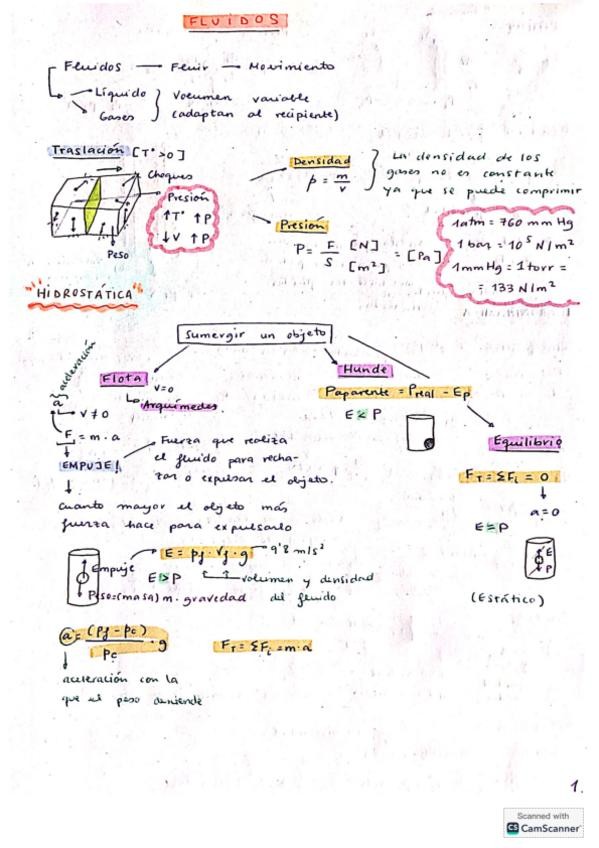 FLUIDOS
Fluidos — Fluir — Movimiento
Líquido
Gases
Volumen variable
(adaptan al recipiente)
Traslación [T° > 0]
Choques
Presión
↑T° ↑P
↓V ↑P
Peso
Densidad
ρ = m/v
La densidad de los
gases no es constante
ya que se puede comprimir
Presión
P = F/S [N]/[m²] = [Pa]
1 atm = 760 mm Hg
1 bar = 10⁵ N/m²
1 mm Hg = 1 torr =
= 133 N/m²
"HIDROSTÁTICA"
Sumergir un objeto
Flota
v=0
Arquímedes
aceleración
a
v ≠ 0
F = m · a
EMPUJE!
Fuerza que realiza
el fluido para recha-
zar o expulsar el objeto.
Cuanto mayor el objeto más
fuerza hace para expulsarlo
Hunde
Paparente = Preal - Ep
E < P
Equilibrio
FT = ΣFi = 0
a = 0
E = P
E
P
(Estático)
Empuje
E = ρf · Vf · g — 9'8 m/s²
E > P
volumen y densidad
del fluido
Peso=(masa) m · gravedad
a = (ρf - ρc)/ρc · g
FT = ΣFi = m·a
aceleración con la
que el peso
1.
Scanned with
CS CamScanner